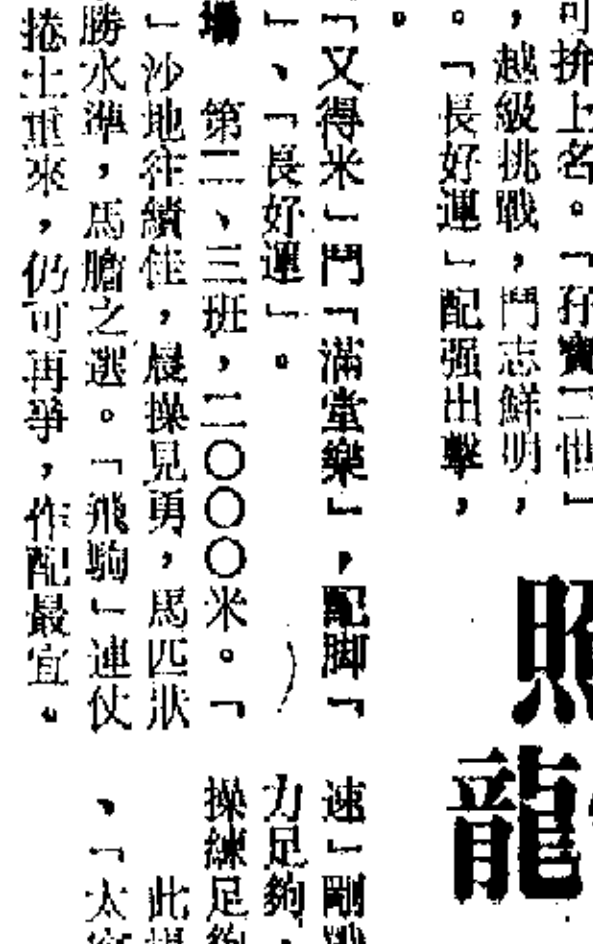 可拚上名。「孖寶二世」
，越級挑戰，鬥志鮮明，
。「長好運」配强出擊，
。
「又得米」鬥「滿堂樂」，配脚「
」、「長好運」。
場　第二、三班，二〇〇〇米。「
」沙地往績佳，晨操見勇，馬匹狀
勝水準，馬膽之選。「飛駒」連仗
捲土重來，仍可再爭，作配最宜。
照
龍
速」剛
力足夠，
操練足夠
此場
、「太